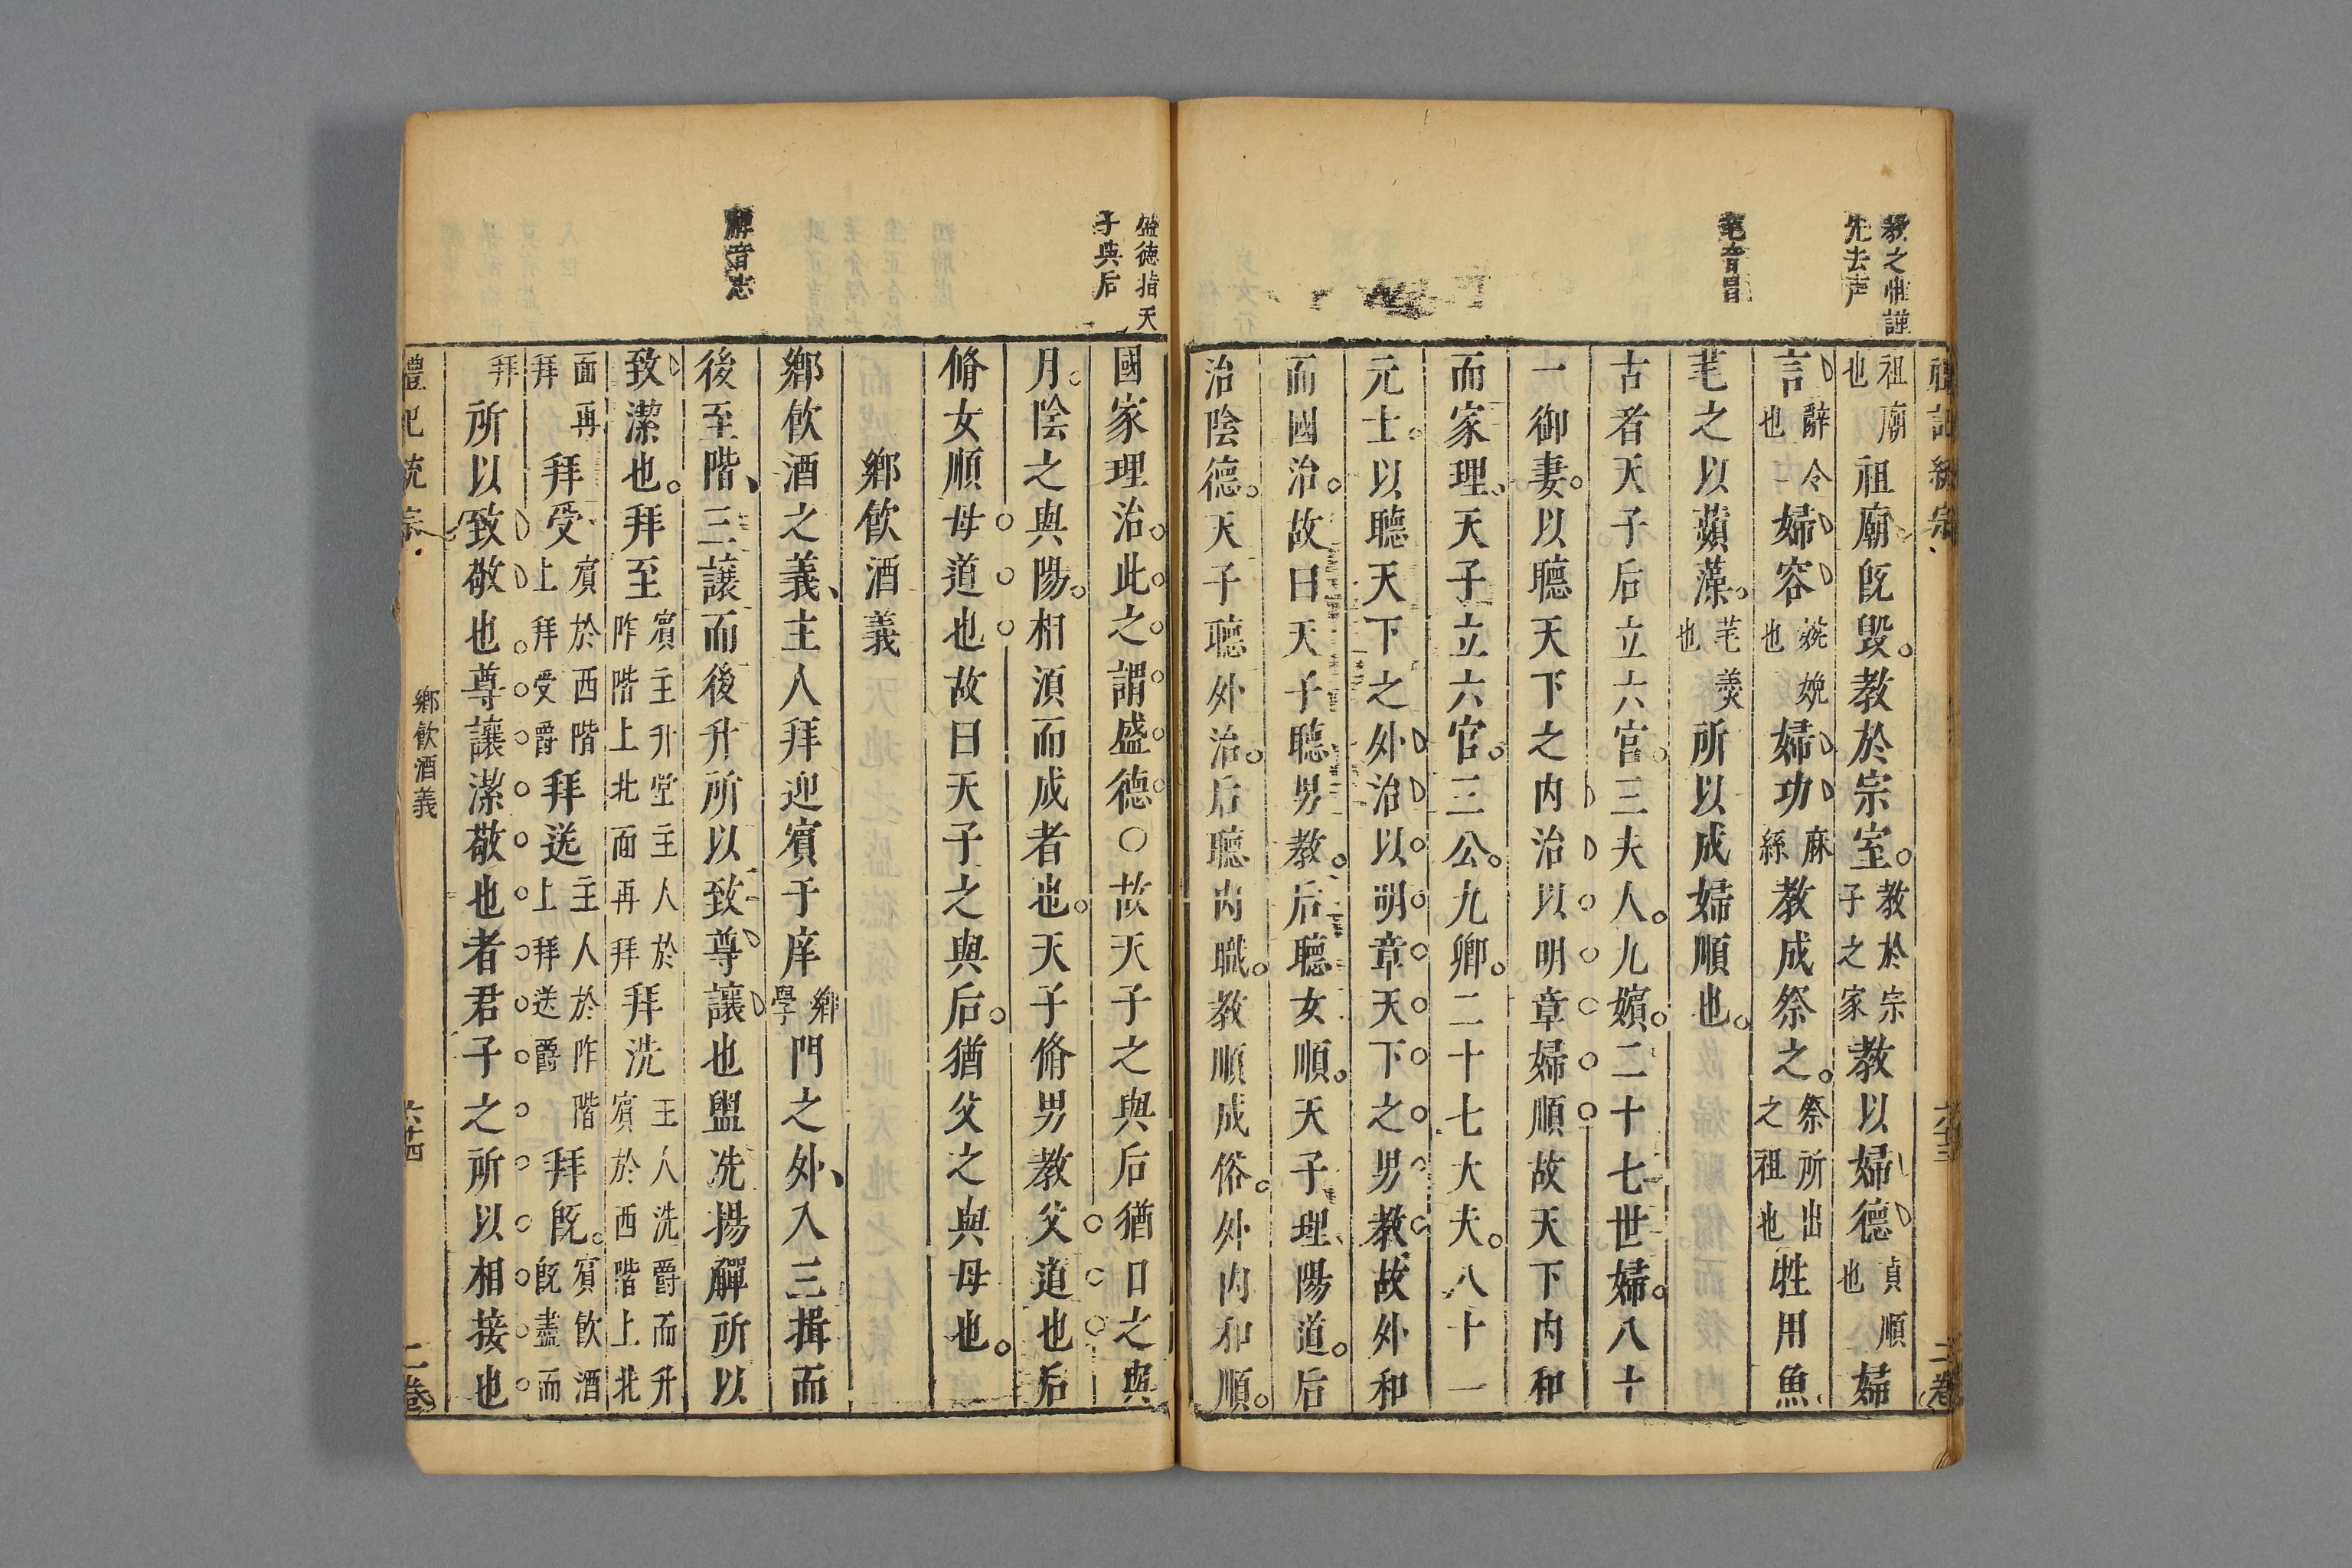 禮記統宗
六十三
二卷
教之惟謹
先去声
芼音冒
祖廟也祖廟既毀。教於宗室。教於宗子之家教以婦德貞順也婦
言辭令也婦容婉娩也婦功絲麻教成祭之。祭所出之祖也牲用魚
芼之以蘋藻。芼羹也所以成婦順也。
古者天子后立六官。三夫人。九嬪。二十七世婦。八十
一御妻。以聽天下之内治以明章婦順故天下内和
而家理。天子立六官。三公。九卿。二十七大夫。八十一
元士。以聽天下之外治以明章天下之男教故外和
而國治。故曰天子聽男教。后聽女順。天子理陽道。后
治陰德。天子聽外治。后聽内職。教順成俗。外内和順。
盛德指天
子與后
觶音志
國家理治。此之謂盛德〇故天子之與后猶日之與
月。陰之與陽。相須而成者也。天子脩男教父道也后
脩女順母道也故曰天子之與后。猶父之與母也。
鄉飲酒義
鄉飲酒之義、主人拜迎賓于庠鄉學門之外、入三揖而
後至階、三讓而後升所以致尊讓也盥洗揚觶所以
致潔也。拜至賓主升堂主人於阼階上北面再拜拜洗主人洗爵而升賓於西階上北
面再拜拜受賓於西階上拜受爵拜送主人於阼階上拜送爵拜既。賓飲酒既盡而
拜所以致敬也。尊讓潔敬也者君子之所以相接也
禮記統宗
鄉飲酒義
六十四
二卷